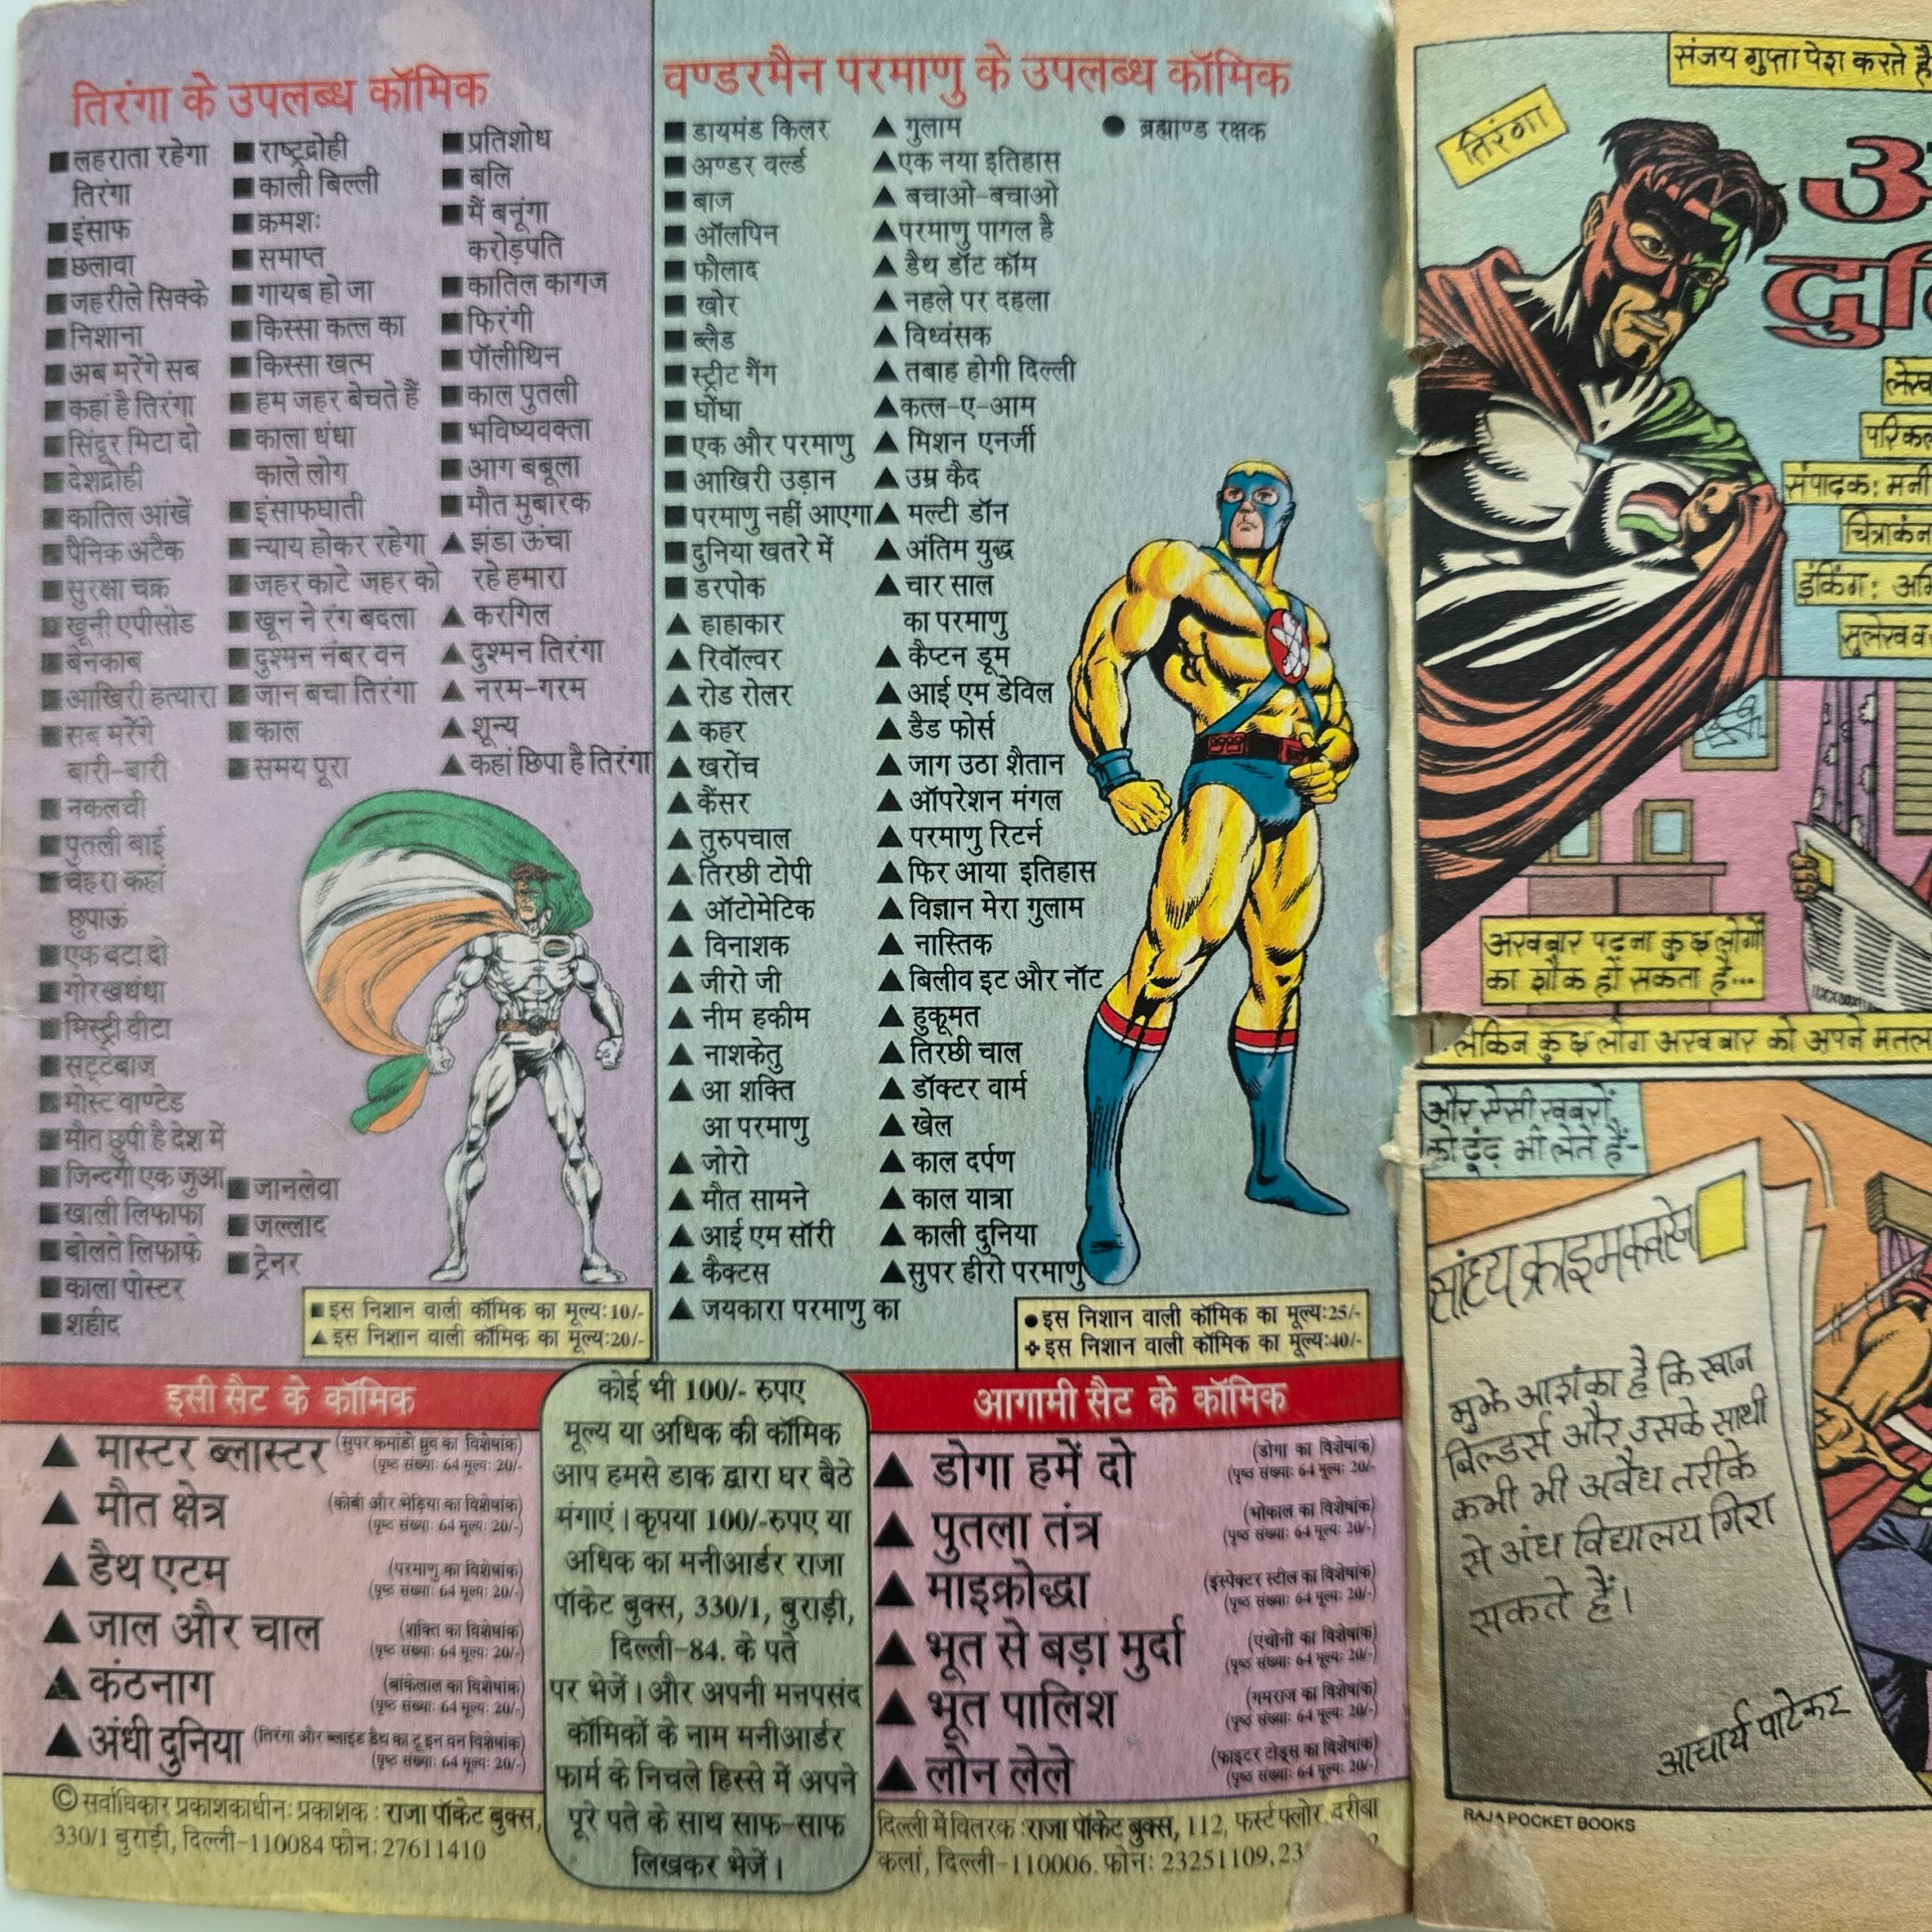 तिरंगा के उपलब्ध कॉमिक
■ लहराता रहेगा
तिरंगा
■ इंसाफ
■ छलावा
■ जहरीले सिक्के
■ निशाना
■ अब मरेंगे सब
■ कहां है तिरंगा
■ सिंदूर मिटा दो
■ देशद्रोही
■ कातिल आंखें
■ पैनिक अटैक
■ सुरक्षा चक्र
■ खूनी एपीसोड
■ बेनकाब
■ आखिरी हत्यारा
■ सब मरेंगे
बारी-बारी
■ नकलची
■ पुतली बाई
■ चेहरा कहां
छुपाऊं
■ एक बटा दो
■ गोरखधंधा
■ मिस्ट्री वीटा
■ सट्टेबाज
■ मोस्ट वाण्टेड
■ मौत छुपी है देश में
■ जिन्दगी एक जुआ
■ खाली लिफाफा
■ बोलते लिफाफे
■ काला पोस्टर
■ शहीद
■ राष्ट्रद्रोही
■ काली बिल्ली
■ क्रमशः
■ समाप्त
■ गायब हो जा
■ किस्सा कत्ल का
■ किस्सा खत्म
■ हम जहर बेचते हैं
■ काला धंधा
काले लोग
■ इंसाफघाती
■ न्याय होकर रहेगा
■ जहर काटे जहर को
■ खून ने रंग बदला
■ दुश्मन नंबर वन
■ जान बचा तिरंगा
■ काल
■ समय पूरा
■ जानलेवा
■ जल्लाद
■ ट्रेनर
■ प्रतिशोध
■ बलि
■ मैं बनूंगा
करोड़पति
■ कातिल कागज
■ फिरंगी
■ पॉलीथिन
■ काल पुतली
■ भविष्यवक्ता
■ आग बबूला
■ मौत मुबारक
▲ झंडा ऊंचा
रहे हमारा
▲ करगिल
▲ दुश्मन तिरंगा
▲ नरम-गरम
▲ शून्य
▲ कहां छिपा है तिरंगा
■ इस निशान वाली कॉमिक का मूल्य:10/-
▲ इस निशान वाली कॉमिक का मूल्य:20/-
वण्डरमैन परमाणु के उपलब्ध कॉमिक
■ डायमंड किलर
■ अण्डर वर्ल्ड
■ बाज
■ ऑलपिन
■ फौलाद
■ खोर
■ ब्लैड
■ स्ट्रीट गैंग
■ घोंघा
■ एक और परमाणु
■ आखिरी उड़ान
■ परमाणु नहीं आएगा
■ दुनिया खतरे में
■ डरपोक
▲ हाहाकार
▲ रिवॉल्वर
▲ रोड रोलर
▲ कहर
▲ खरोंच
▲ कैंसर
▲ तुरुपचाल
▲ तिरछी टोपी
▲ ऑटोमेटिक
▲ विनाशक
▲ जीरो जी
▲ नीम हकीम
▲ नाशकेतु
▲ आ शक्ति
आ परमाणु
▲ जोरो
▲ मौत सामने
▲ आई एम सॉरी
▲ कैक्टस
▲ जयकारा परमाणु का
▲ गुलाम
▲ एक नया इतिहास
▲ बचाओ-बचाओ
▲ परमाणु पागल है
▲ डैथ डॉट कॉम
▲ नहले पर दहला
▲ विध्वंसक
▲ तबाह होगी दिल्ली
▲ कत्ल-ए-आम
▲ मिशन एनर्जी
▲ उम्र कैद
▲ मल्टी डॉन
▲ अंतिम युद्ध
▲ चार साल
का परमाणु
▲ कैप्टन डूम
▲ आई एम डेविल
▲ डैड फोर्स
▲ जाग उठा शैतान
▲ ऑपरेशन मंगल
▲ परमाणु रिटर्न
▲ फिर आया इतिहास
▲ विज्ञान मेरा गुलाम
▲ नास्तिक
▲ बिलीव इट और नॉट
▲ हुकूमत
▲ तिरछी चाल
▲ डॉक्टर वार्म
▲ खेल
▲ काल दर्पण
▲ काल यात्रा
▲ काली दुनिया
▲ सुपर हीरो परमाणु
● ब्रह्माण्ड रक्षक
● इस निशान वाली कॉमिक का मूल्य:25/-
✤ इस निशान वाली कॉमिक का मूल्य:40/-
इसी सैट के कॉमिक
▲ मास्टर ब्लास्टर (सुपर कमांडो ध्रुव का विशेषांक)
(पृष्ठ संख्याः 64 मूल्यः 20/-
▲ मौत क्षेत्र (कोबी और भेड़िया का विशेषांक)
(पृष्ठ संख्याः 64 मूल्यः 20/-)
▲ डैथ एटम (परमाणु का विशेषांक)
(पृष्ठ संख्याः 64 मूल्यः 20/-)
▲ जाल और चाल (शक्ति का विशेषांक)
(पृष्ठ संख्याः 64 मूल्यः 20/-)
▲ कंठनाग (बांकेलाल का विशेषांक)
(पृष्ठ संख्याः 64 मूल्यः 20/-)
▲ अंधी दुनिया (तिरंगा और ब्लाइंड डैथ का टू इन वन विशेषांक)
(पृष्ठ संख्याः 64 मूल्यः 20/-)
कोई भी 100/- रुपए
मूल्य या अधिक की कॉमिक
आप हमसे डाक द्वारा घर बैठे
मंगाएं। कृपया 100/-रुपए या
अधिक का मनीआर्डर राजा
पॉकेट बुक्स, 330/1, बुराड़ी,
दिल्ली-84. के पते
पर भेजें। और अपनी मनपसंद
कॉमिकों के नाम मनीआर्डर
फार्म के निचले हिस्से में अपने
पूरे पते के साथ साफ-साफ
लिखकर भेजें।
आगामी सैट के कॉमिक
▲ डोगा हमें दो (डोगा का विशेषांक)
(पृष्ठ संख्याः 64 मूल्यः 20/-
▲ पुतला तंत्र (भोकाल का विशेषांक)
(पृष्ठ संख्याः 64 मूल्यः 20/-)
▲ माइक्रोद्धा (इंस्पेक्टर स्टील का विशेषांक)
(पृष्ठ संख्याः 64 मूल्यः 20/-)
▲ भूत से बड़ा मुर्दा (एंथोनी का विशेषांक)
(पृष्ठ संख्याः 64 मूल्यः 20/-)
▲ भूत पालिश (गमराज का विशेषांक)
(पृष्ठ संख्याः 64 मूल्यः 20/-)
▲ लौन लेले (फाइटर टोड्स का विशेषांक)
(पृष्ठ संख्याः 64 मूल्यः 20/-)
© सर्वाधिकार प्रकाशकाधीनः प्रकाशक : राजा पॉकेट बुक्स,
330/1 बुराड़ी, दिल्ली-110084 फोन:27611410
दिल्ली में वितरक :राजा पॉकेट बुक्स, 112, फर्स्ट फ्लोर, दरीबा
कलां, दिल्ली-110006. फोन: 23251109,23
संजय गुप्ता पेश करते हैं
तिरंगा
संपादक: मनी
इंकिंग:
अखबार पढ़ना कुछ लोगों
का शौक हो सकता है...
लेकिन कुछ लोग अखबार को अपने मतल
और ऐसी खबरों
को ढूंढ़ भी लेते हैं-
सांध्य क्राइम कवरेज
मुझे आशंका है कि खान
बिल्डर्स और उसके साथी
कभी भी अवैध तरीके
से अंध विद्यालय गिरा
सकते हैं।
आचार्य पाटेकर
RAJA POCKET BOOKS